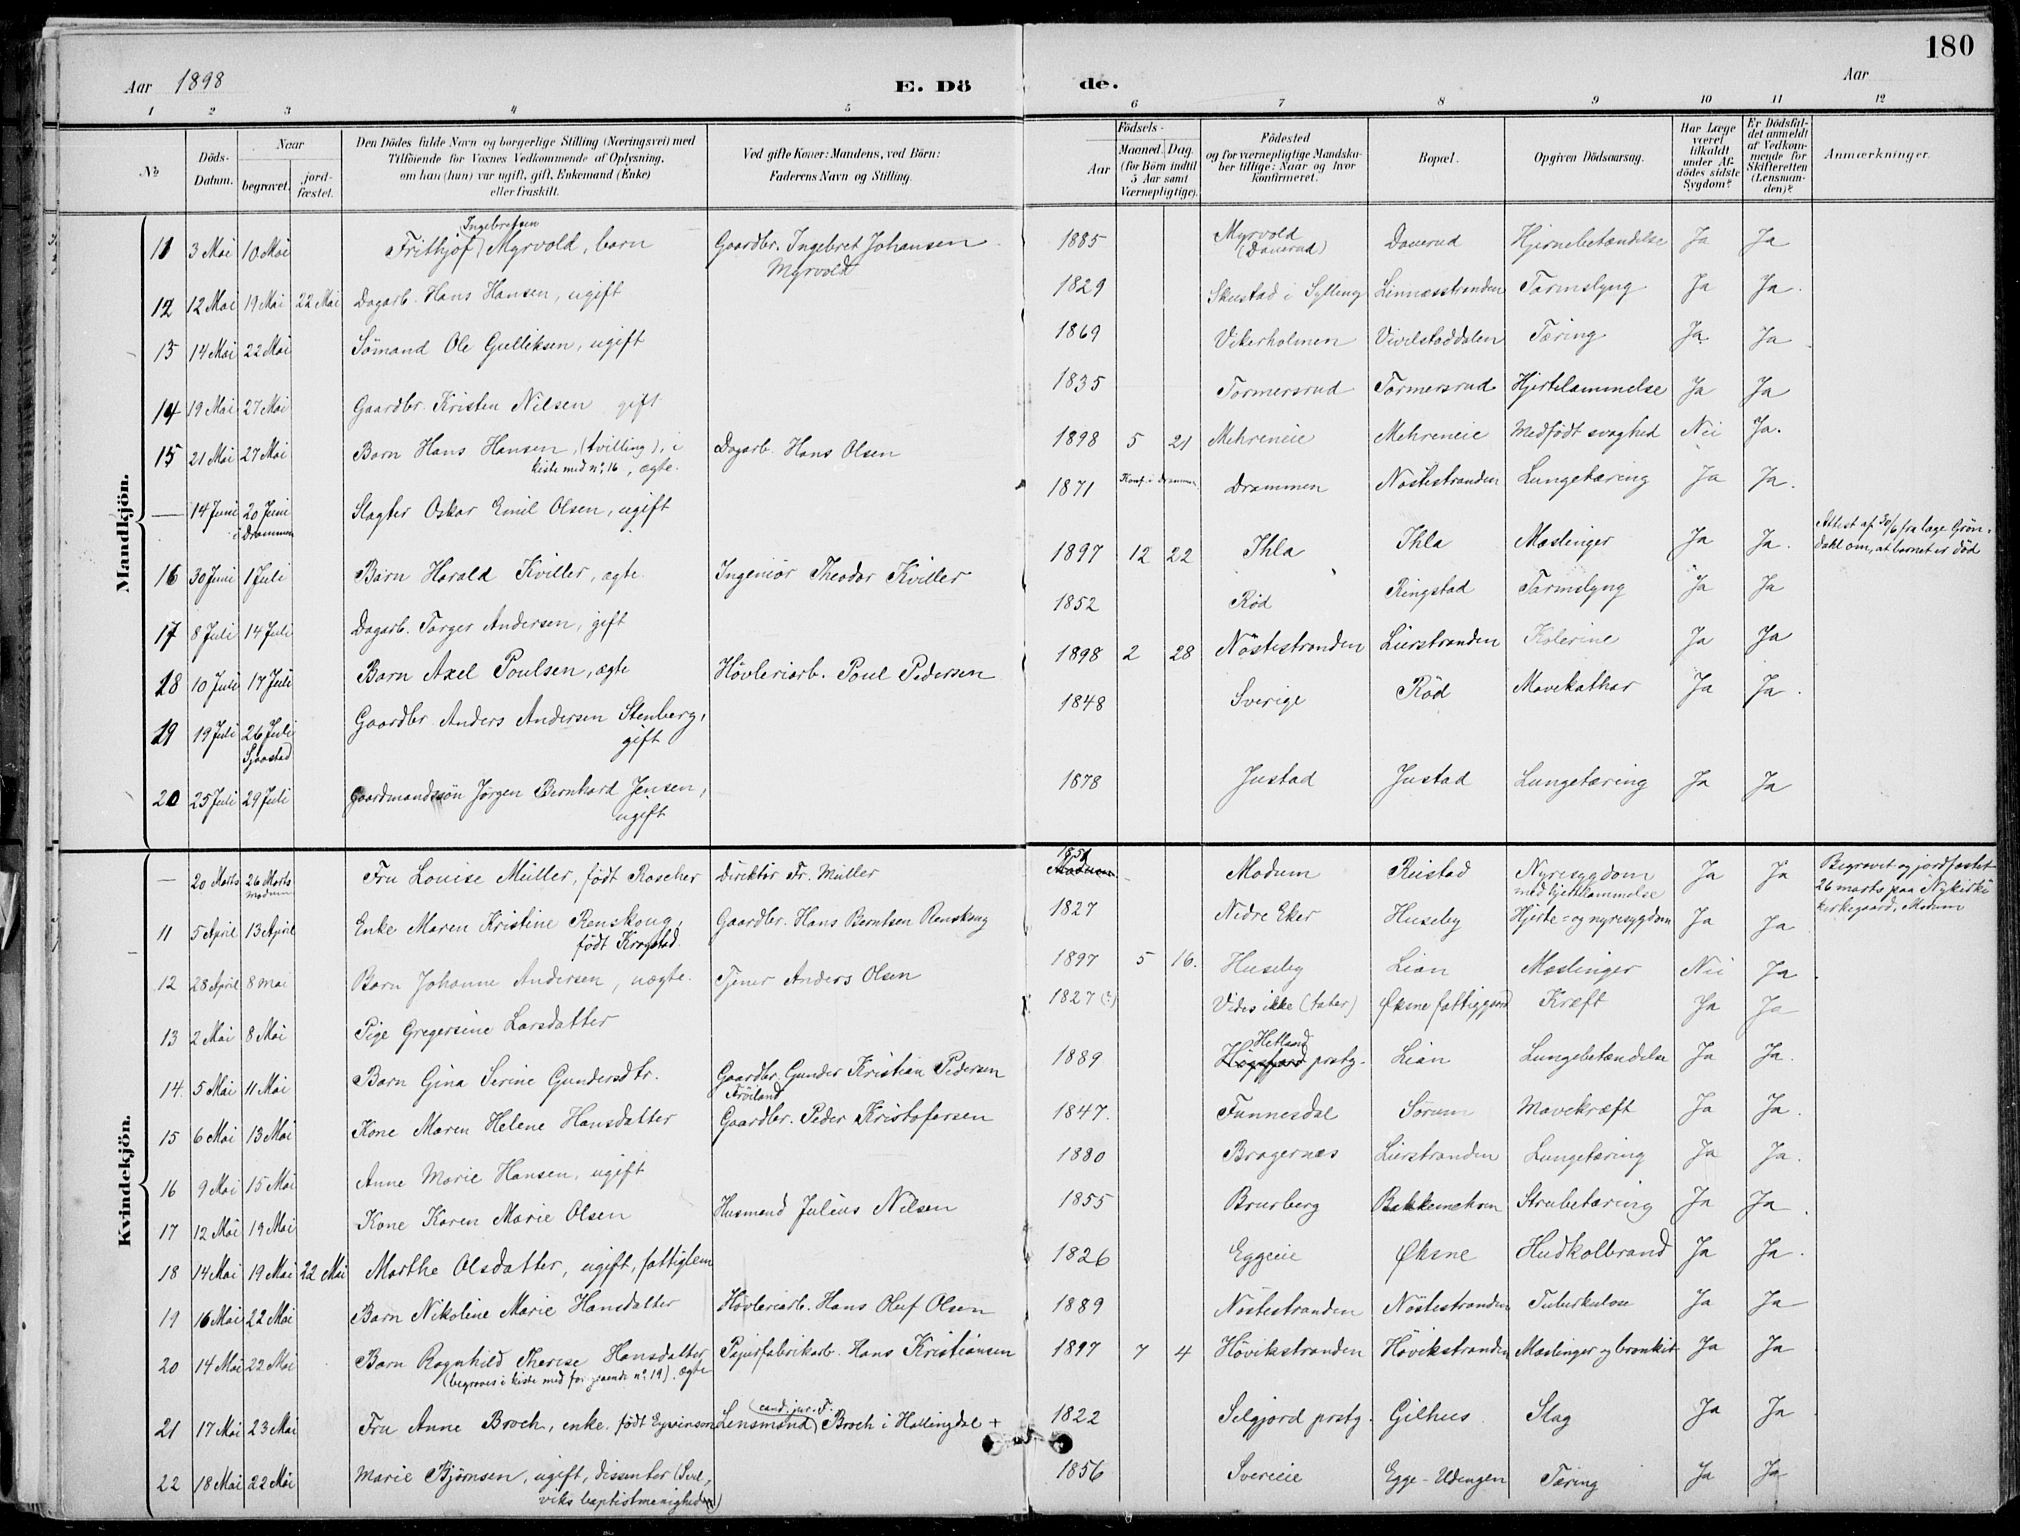 180
Aar 1898 E. Dö de. Aar
1 2 3 4 5 6 7 8 9 10 11 12
No
Döds-Datum.
Naar
begravet.
jord-fæstet.
Den Dödes fulde Navn og borgerlige Stilling (Næringsvei) med
Tilföiende for Voxnes Vedkommende af Oplysning,
om han (hun) var ugift, gift, Enkemand (Enke)
eller fraskilt.
Ved gifte Koner: Mandens, ved Börn:
Faderens Navn og Stilling.
Födsels-
Aar
Maaned. Dag.
(for Börn indtil
5 Aar samt
Værnepligtige).
Födested
og for værnepligtige Mandska-
ber tillige: Naar og hvor
konfirmeret.
Bopæl.
Opgiven Dödsaarsag.
Har Læge
været
tilkaldt
under Af-
dödes sidste
Sygdom?
Er Dödsfal-
det anmeldt
af Vedkom-
mende for
Skifteretten
(Lensman-
den)?
Anmærkninger.
Mandkjön.
11 3 Mai 10 Mai Frithjof Ingebretsen Myrvold, barn Gaardbr. Ingebret Johansen Myrvold 1885 Myrvold (Dauerud) Dauerud Hjernebetændelse Ja Ja
12 12 Mai 19 Mai 22 Mai Dagarb. Hans Hansen, ugift 1829 Skustad i Sylling Linnæsstranden Tarmslyng Ja Ja.
13 14 Mai 22 Mai Sömand Ole Gulliksen, ugift 1869 Vikerholmen Vivelstaddalen Tæring Ja Ja
14 19 Mai 27 Mai Gaardbr. Kristen Nilsen gift 1835 Tormersrud Tormersrud Hjertelammelse Ja Ja
15 21 Mai 27 Mai Barn Hans Hansen, (tvilling), i kiste med no. 16, ægte. Dagarb. Hans Olsen 1898 5 21 Mehreneie Mehreneie Medfödt svaghed Nei Ja.
— 14 Juni 20 Juni i Drammen Slagter Oskar Emil Olsen, ugift 1871 Konf. i Drammen Drammen Nöstestranden Lungetæring Ja Ja.
16 30 Juni 1 Juli Barn Harald Kviller, ægte. Ingeniör Theodor Kviller 1897 12 22 Ihla Ihla Mæslinger Ja Ja. Attest af 30/6 fra læge Gröndahl om, at barnet er död
17 8 Juli 14 Juli Dagarb. Torger Andersen, gift 1852 Röd Ringstad Tarmslyng Ja Ja
18 10 Juli 17 Juli Barn Axel Poulsen, ægte Hövleriarb. Poul Pedersen 1898 2 28 Nöstestranden Lierstranden Kolerine Ja Ja
19 19 Juli 26 Juli Sjaastad Gaardbr Anders Andersen Stenberg, gift 1848 Sverige Röd Mavekathar Ja Ja.
20 25 Juli 29 Juli Gaardmandssön Jörgen Bernhard Jensen, ugift 1878 Justad Justad Lungetæring Ja Ja
Kvindekjön.
— 20 Marts 26 Marts Modum Fru Louise Müller, födt Roscher Direktör Fr. Müller 1851 Modum Modum Riistad Nyresygdom med hjertelammelse Ja Ja Begravet og jordfæstet 26 marts paa Nykirke kirkegaard, Modum
11 5 April 13 April Enke Maren Kristine Renskoug, födt Krogstad. Gaardbr. Hans Berntsen Renskoug 1827 Nedre Eker Huseby Hjerte- og nyresygdom Ja Ja
12 28 April 8 mai Barn Johanne Andersen, uægte. Tjener Anders Olsen 1897 5 16. Huseby Lian Mæslinger Nei Ja
13 2 Mai 8 Mai Pige Gregersine Larsdatter 1827 (?) Vides ikke (tater) Öksne fattiggaard Kræft Ja Ja
14. 5 Mai 11 Mai Barn Gina Serine Gundersdtr. Gaardbr. Gunder Kristian Pedersen Fröiland 1889 Hetland Högsfjord prstg. Lian Lungebetændelse Ja Ja.
15 6 Mai 13 Mai Kone Maren Helene Hansdatter Gaardbr. Peder Kristofersen 1847. Funnesdal Sörum Mavekræft Ja Ja.
16 9 Mai 15 Mai Anne Marie Hansen, ugift 1880 Bragernæs Lierstranden Lungetæring Ja Ja.
17 12 Mai 19 Mai Kone Karen Marie Olsen Husmand Julius Nilsen 1855 Brurberg Bakkemehren Strubetæring Ja Ja.
18 14 Mai 19 Mai 22 Mai Marthe Olsdatter, ugift, fattiglem 1826 Eggeie Öksne Hudkolbrand Ja Ja.
19 16 Mai 22 Mai Barn Nikoline Marie Hansdatter Hövleriarb. Hans Oluf Olsen 1889 Nöstestranden Nöstestranden Tuberkulose Ja Ja
20 14 Mai 22 Mai Barn Ragnhild Therese Hansdatter (begraves i kiste med foregaaende no. 19). ægte Papirfabrikarb. Hans Kristiansen 1897 7 4 Hövikstranden Hövikstranden Mæslinger og bronkit Ja Ja
21 17 Mai 23 Mai Fru Anne Broch, enke, födt Eyvinson Lensmand cand. jur. F. Broch i Hallingdal + 1822 Selgjord prstg. Gilhus Slag Ja Ja
22 18 Mai 22 Mai Marie Björnsen, ugift, dissenter (Svelviks baptistmenighed) 1856 Svereeie Egge-Udengen Tæring Ja Ja